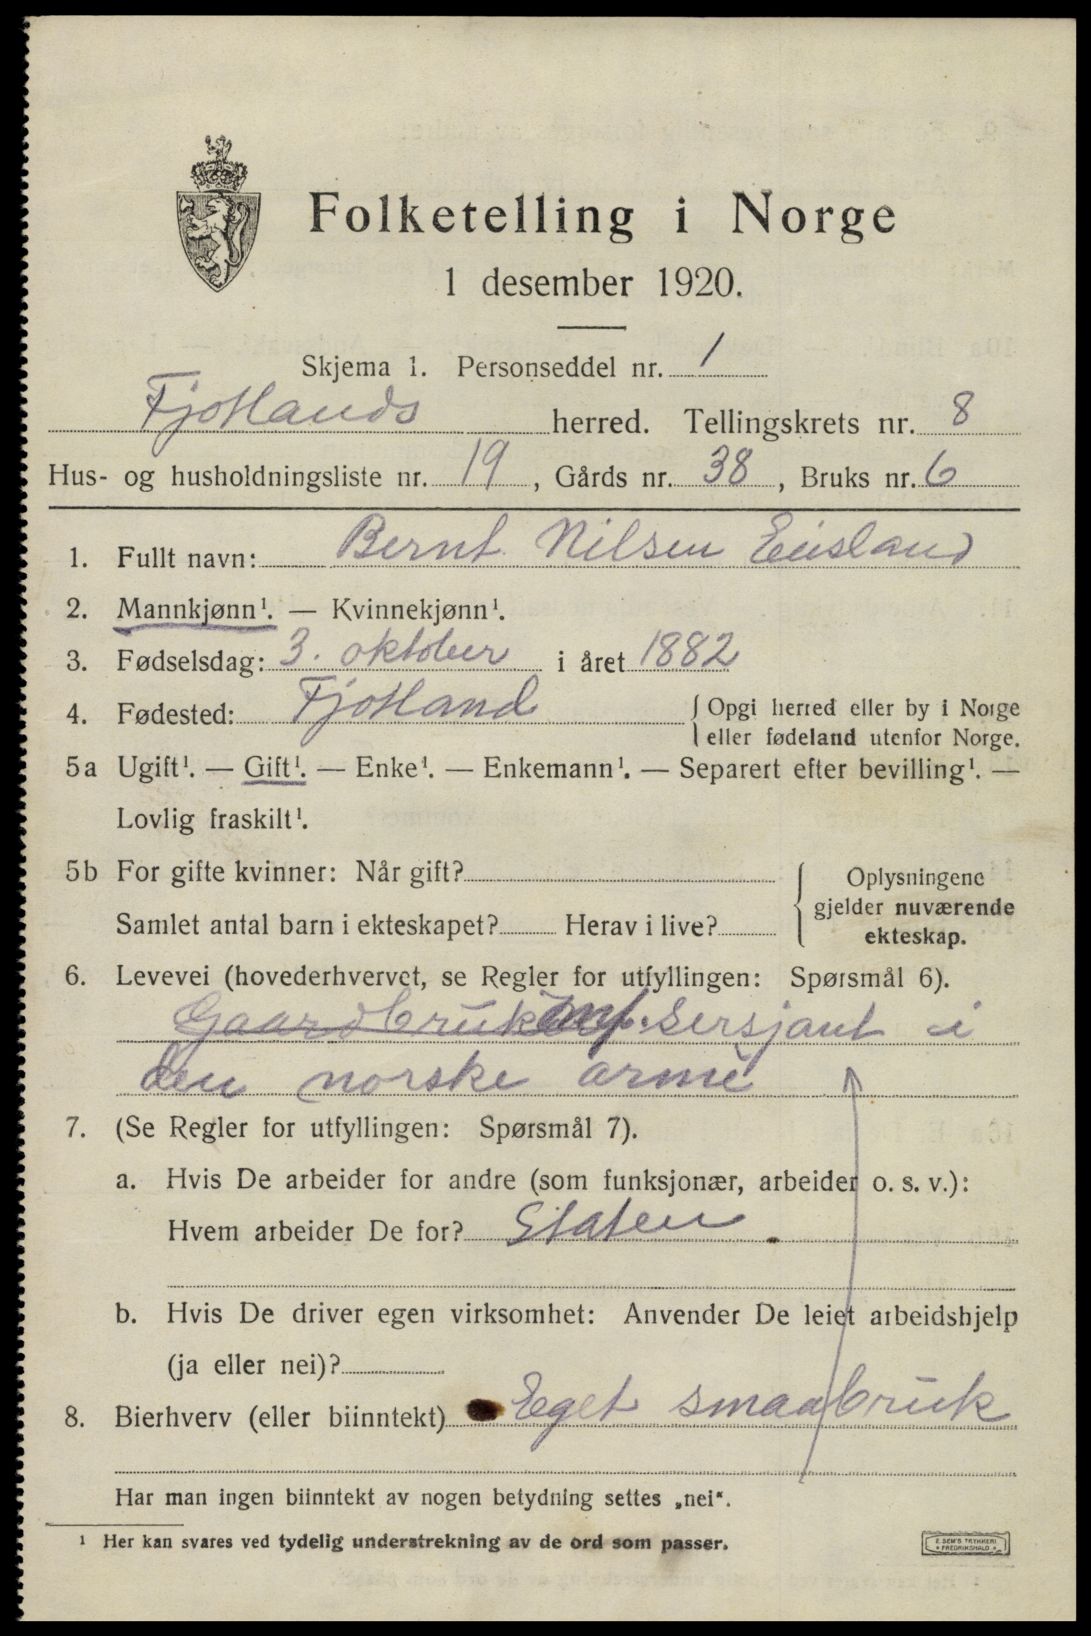 Folketelling i Norge
1 desember 1920.
Skjema 1. Personseddel nr. 1
Fjotlands herred. Tellingskrets nr. 8
Hus- og husholdningsliste nr. 19, Gårds nr. 38, Bruks nr. 6
1. Fullt navn: Bernt Nilsen Eiesland
2. Mannkjønn¹. — Kvinnekjønn¹.
3. Fødselsdag: 3. oktober i året 1882
4. Fødested: Fjotland { Opgi herred eller by i Norge
eller fødeland utenfor Norge.
5a Ugift¹. — Gift¹. — Enke¹. — Enkemann¹. — Separert efter bevilling¹. —
Lovlig fraskilt¹.
5b For gifte kvinner: Når gift?
Samlet antal barn i ekteskapet? Herav i live?
{ Oplysningene
gjelder nuværende
ekteskap.
6. Levevei (hovederhvervet, se Regler for utfyllingen: Spørsmål 6).
Gaardbruker inf. Sersjant i
den norske armè
7. (Se Regler for utfyllingen: Spørsmål 7).
a. Hvis De arbeider for andre (som funksjonær, arbeider o. s. v.):
Hvem arbeider De for? Staten
b. Hvis De driver egen virksomhet: Anvender De leiet arbeidshjelp
(ja eller nei)?
8. Bierhverv (eller biinntekt) Eget smaabruk
Har man ingen biinntekt av nogen betydning settes „nei“.
¹ Her kan svares ved tydelig understrekning av de ord som passer.
E. SEM'S TRYKKERI
FREDRIKSHALD